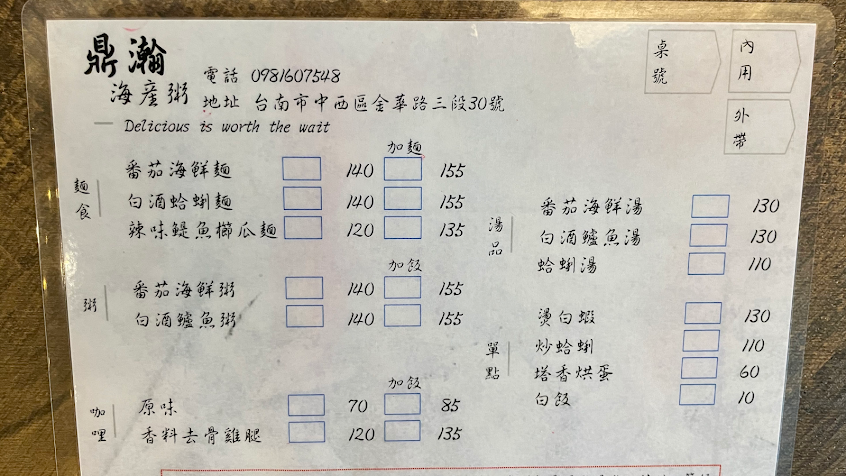 鼎瀚
海產粥
電話 0981607548
地址 台南市中西區金華路三段30號
Delicious is worth the wait
桌號
內用
外帶
麵食
加麵
番茄海鮮麵 140 155
白酒蛤蜊麵 140 155
辣味鯷魚櫛瓜麵 120 135
粥
加飯
番茄海鮮粥 140 155
白酒鱸魚粥 140 155
咖哩
加飯
原味 70 85
香料去骨雞腿 120 135
湯品
番茄海鮮湯 130
白酒鱸魚湯 130
蛤蜊湯 110
單點
燙白蝦 130
炒蛤蜊 110
塔香烘蛋 60
白飯 10